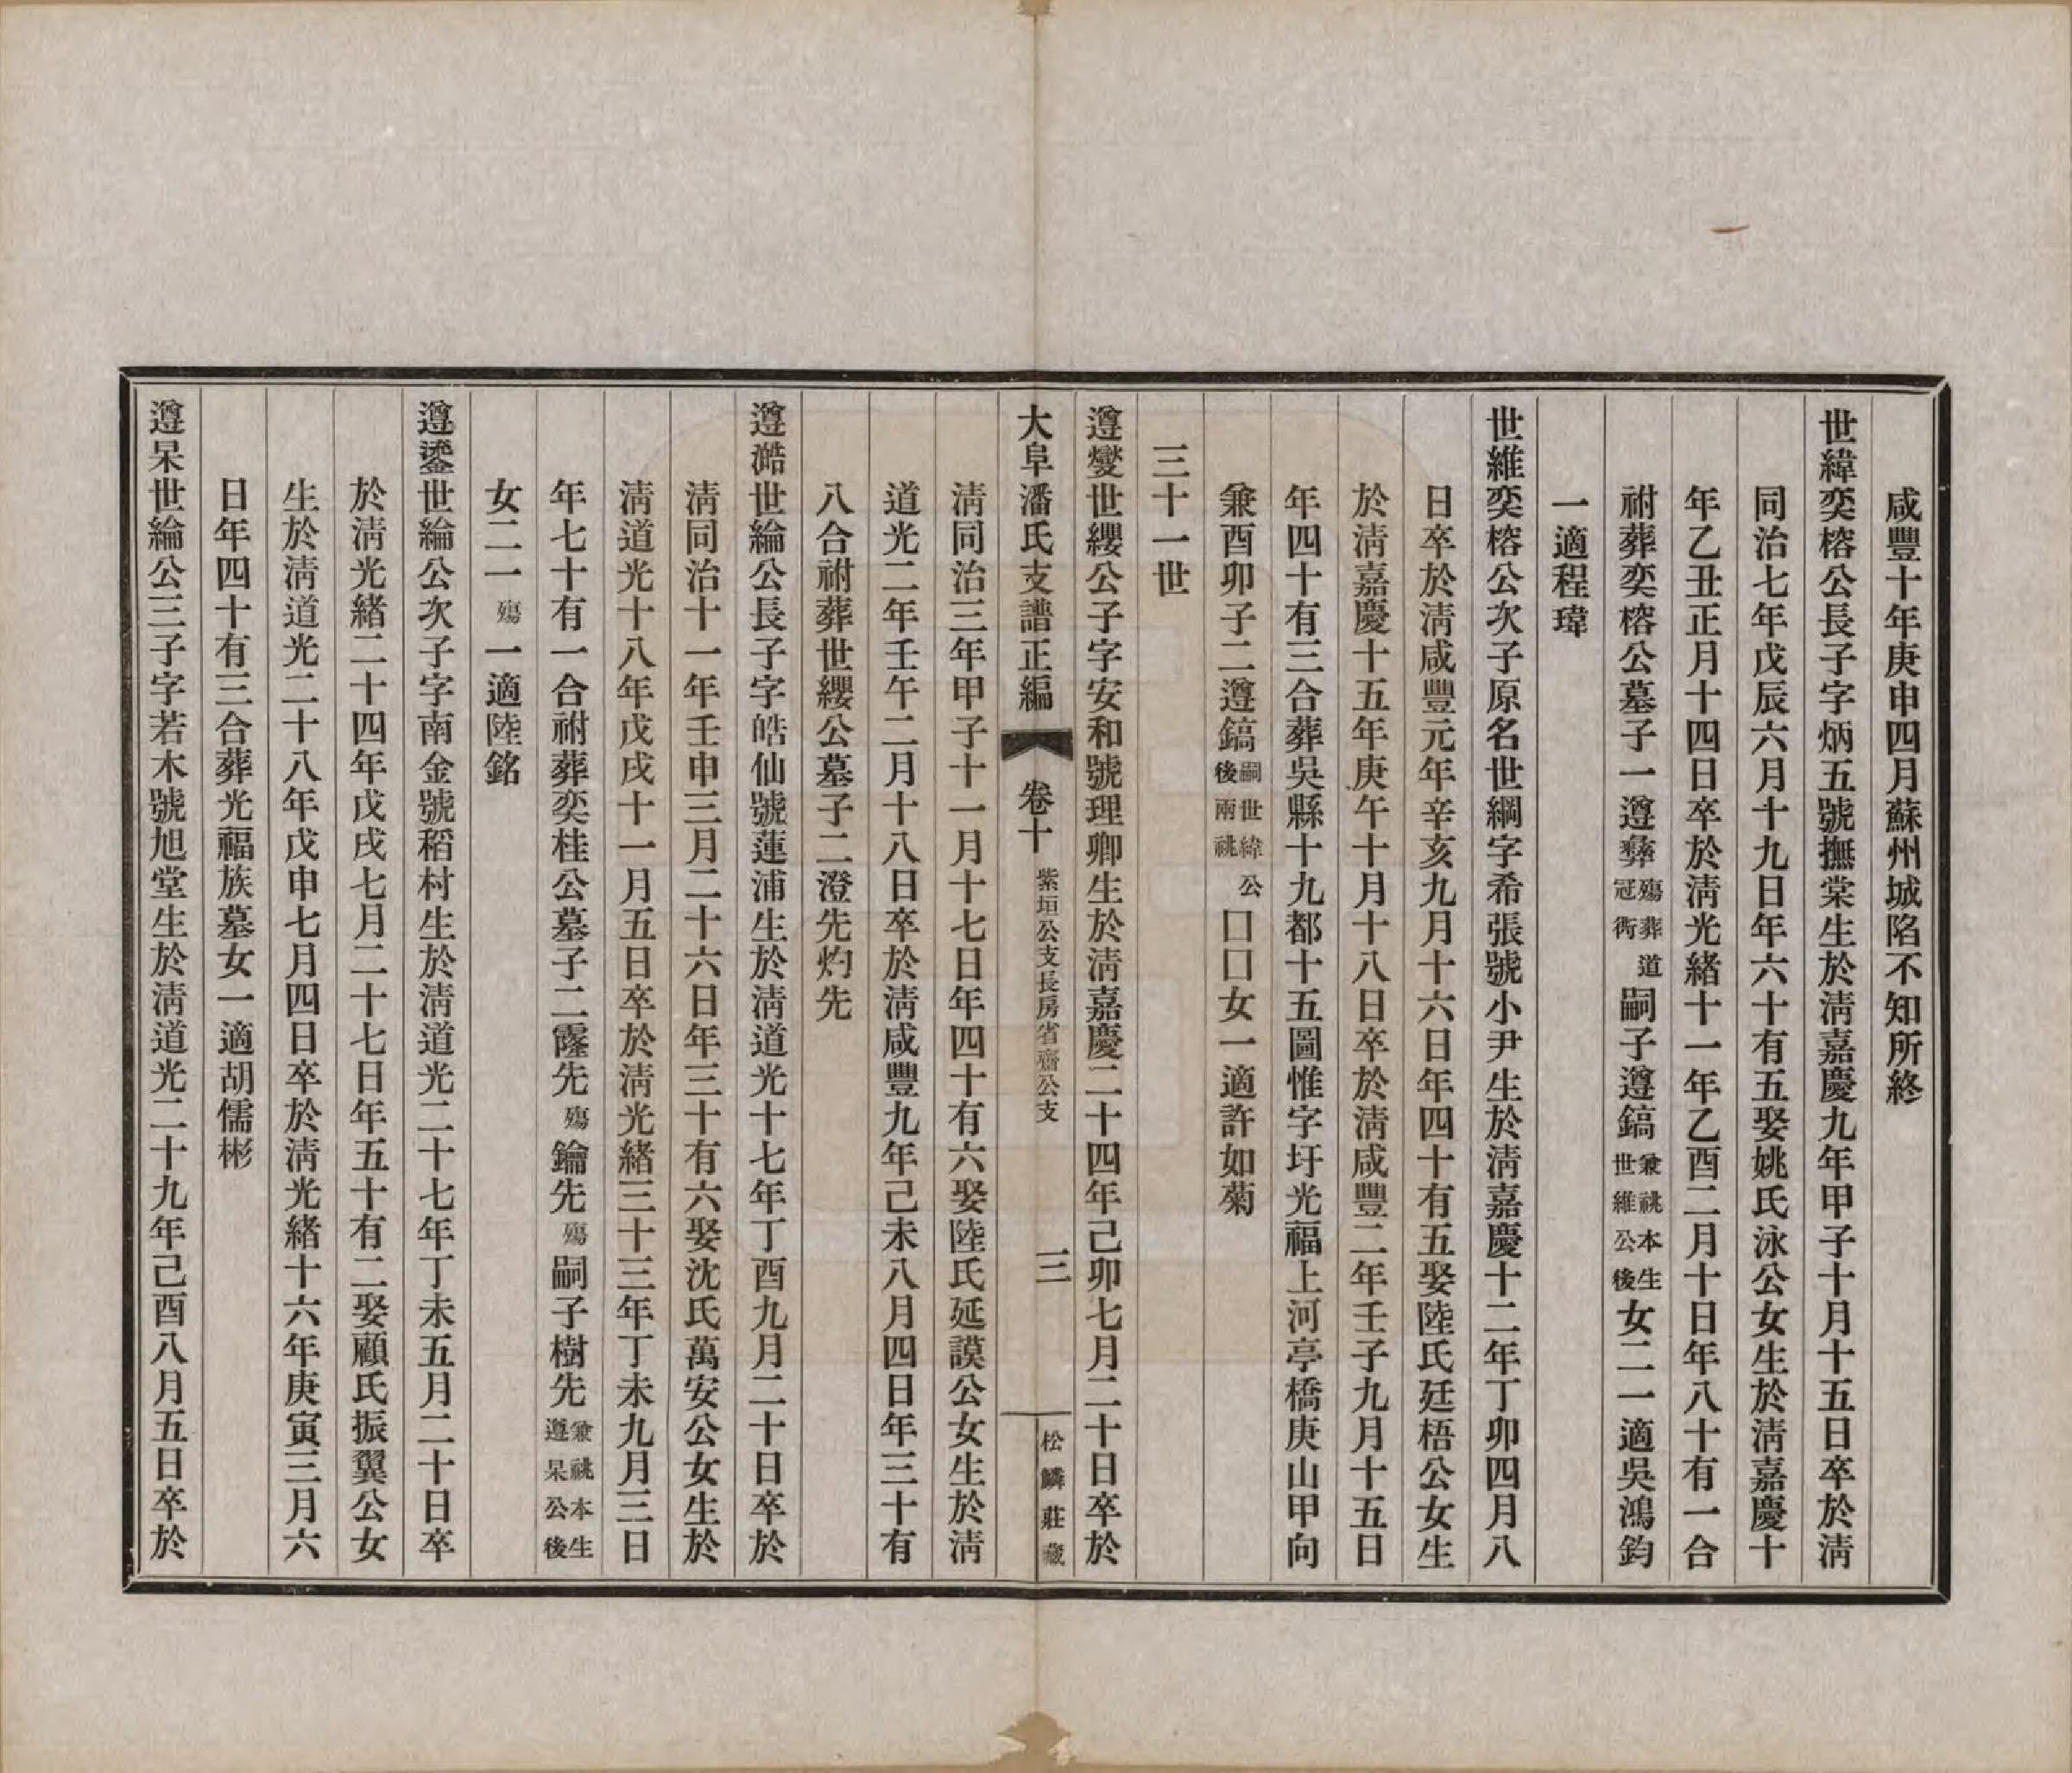 咸豐十年庚申四月蘇州城陷不知所終
世緯奕榕公長子字炳五號撫棠生於清嘉慶九年甲子十月十五日卒於清
同治七年戊辰六月十九日年六十有五娶姚氏泳公女生於清嘉慶十
年乙丑正月十四日卒於清光緒十一年乙酉二月十日年八十有一合
祔葬奕榕公墓子一遵彝殤葬道冠衖嗣子遵鎬兼祧本生世維公後女二一適吳鴻鈞
一適程瑋
世維奕榕公次子原名世綱字希張號小尹生於清嘉慶十二年丁卯四月八
日卒於清咸豐元年辛亥九月十六日年四十有五娶陸氏廷梧公女生
於清嘉慶十五年庚午十月十八日卒於清咸豐二年壬子九月十五日
年四十有三合葬吳縣十九都十五圖惟字圩光福上河亭橋庚山甲向
兼酉卯子二遵鎬嗣世緯公後兩祧囗囗女一適許如菊
三十一世
遵燮世纓公子字安和號理卿生於清嘉慶二十四年己卯七月二十日卒於
大阜潘氏支譜正編 卷十 紫垣公支長房省齋公支 三 松鱗莊藏
清同治三年甲子十一月十七日年四十有六娶陸氏延謨公女生於清
道光二年壬午二月十八日卒於清咸豐九年己未八月四日年三十有
八合祔葬世纓公墓子二澄先灼先
遵澔世綸公長子字皓仙號蓮浦生於清道光十七年丁酉九月二十日卒於
清同治十一年壬申三月二十六日年三十有六娶沈氏萬安公女生於
清道光十八年戊戌十一月五日卒於清光緒三十三年丁未九月三日
年七十有一合祔葬奕桂公墓子二霳先殤鑰先殤嗣子樹先兼祧本生遵杲公後
女二一殤一適陸銘
遵鎏世綸公次子字南金號稻村生於清道光二十七年丁未五月二十日卒
於清光緒二十四年戊戌七月二十七日年五十有二娶顧氏振翼公女
生於清道光二十八年戊申七月四日卒於清光緒十六年庚寅三月六
日年四十有三合葬光福族墓女一適胡儒彬
遵杲世綸公三子字若木號旭堂生於清道光二十九年己酉八月五日卒於